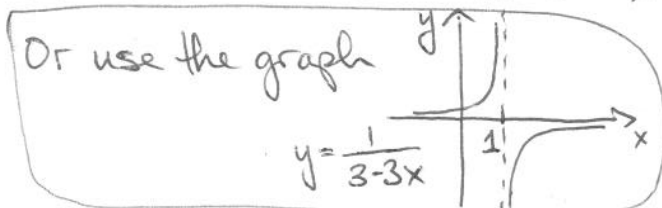 Or use the graph
y
y = 1/(3-3x)
1
x